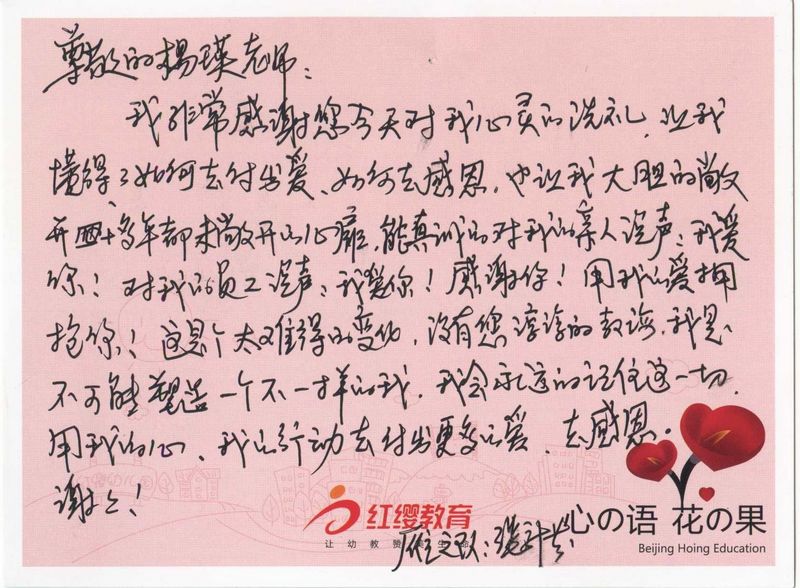 尊敬的杨瑛老师：
我非常感谢您今天对我心灵的洗礼，让我
懂得了如何去付出爱、如何去感恩，也让我大胆的敞
开四十多年都未敞开的心扉，能真诚的对我的亲人说声：我爱
你！对我的员工说声：我爱你！感谢你！用我的爱拥
抱你！这是个太难得的变化，没有您谆谆的教诲，我是
不可能塑造一个不一样的我，我会永远的记住这一切，
用我的心，我的行动去付出更多的爱、去感恩。
谢谢！
红缨教育
让幼教赞 生命
心の语 花の果
Beijing Hoing Education
雁之队：